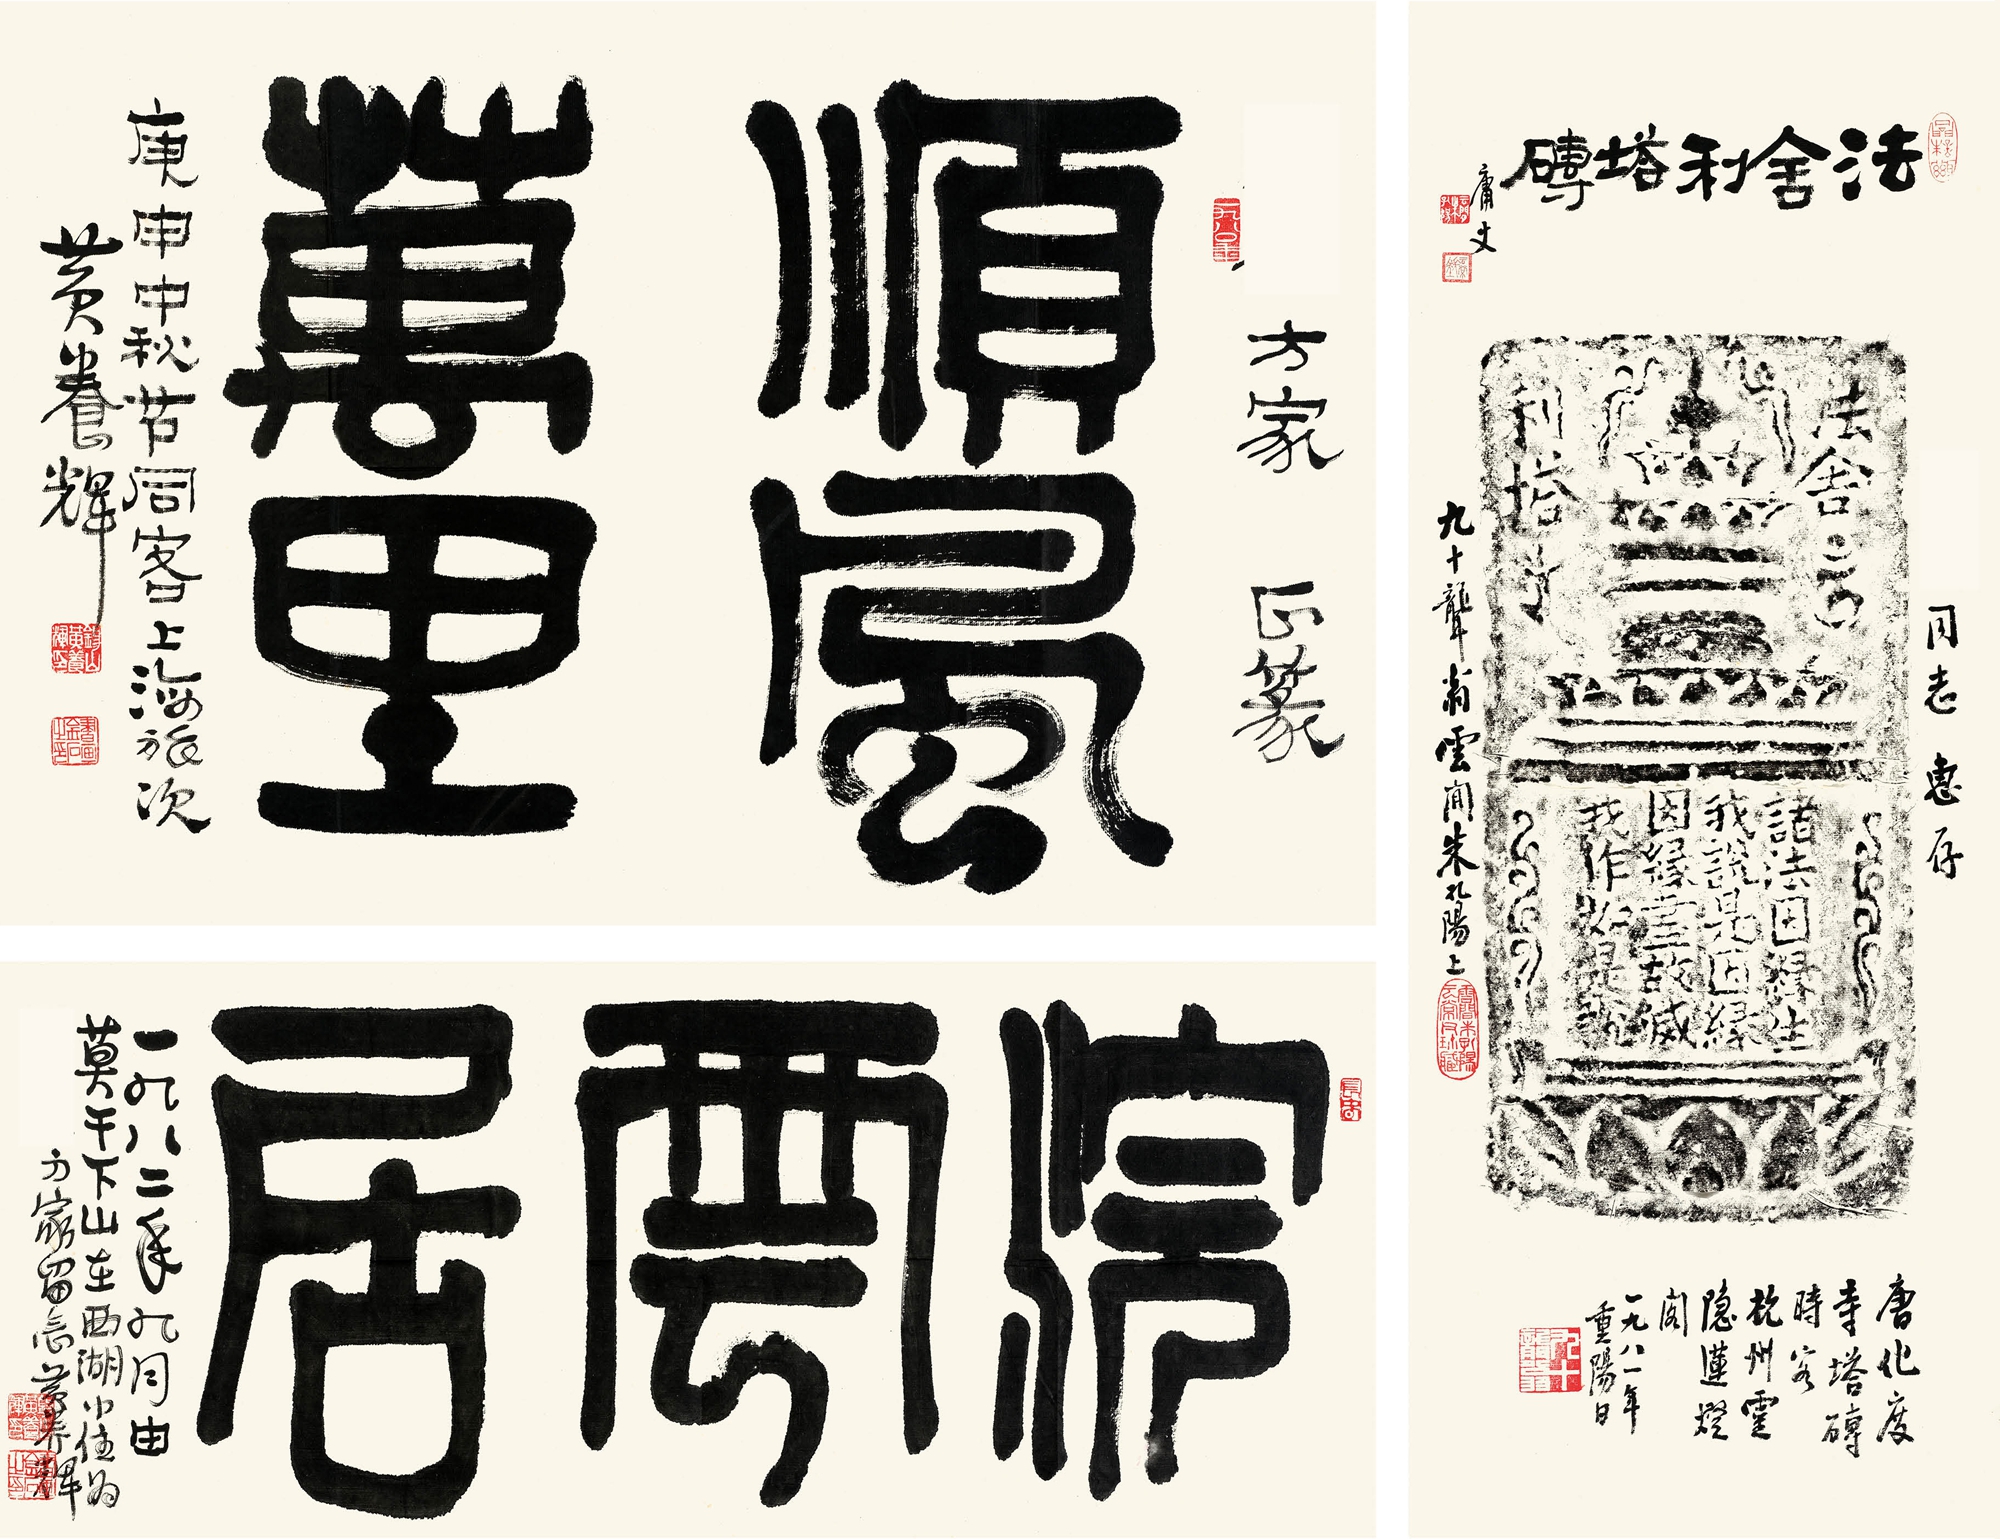 方家 正篆
順風
萬里
庚申中秋节同客上海旅次
黄養輝
浣雲居
一九八二年九月由
莫干下山在西湖小住为
方家留念 黄养輝
法舍利塔磚
庸丈
同志 惠存
法舍
利塔
諸法因緣生
我說是因緣
因緣盡故滅
我作如是說
九十龔翁雲間朱孔陽上
唐化度
寺塔磚
時客
杭州靈
隐蓮燈
閣
一九八一年
重陽日